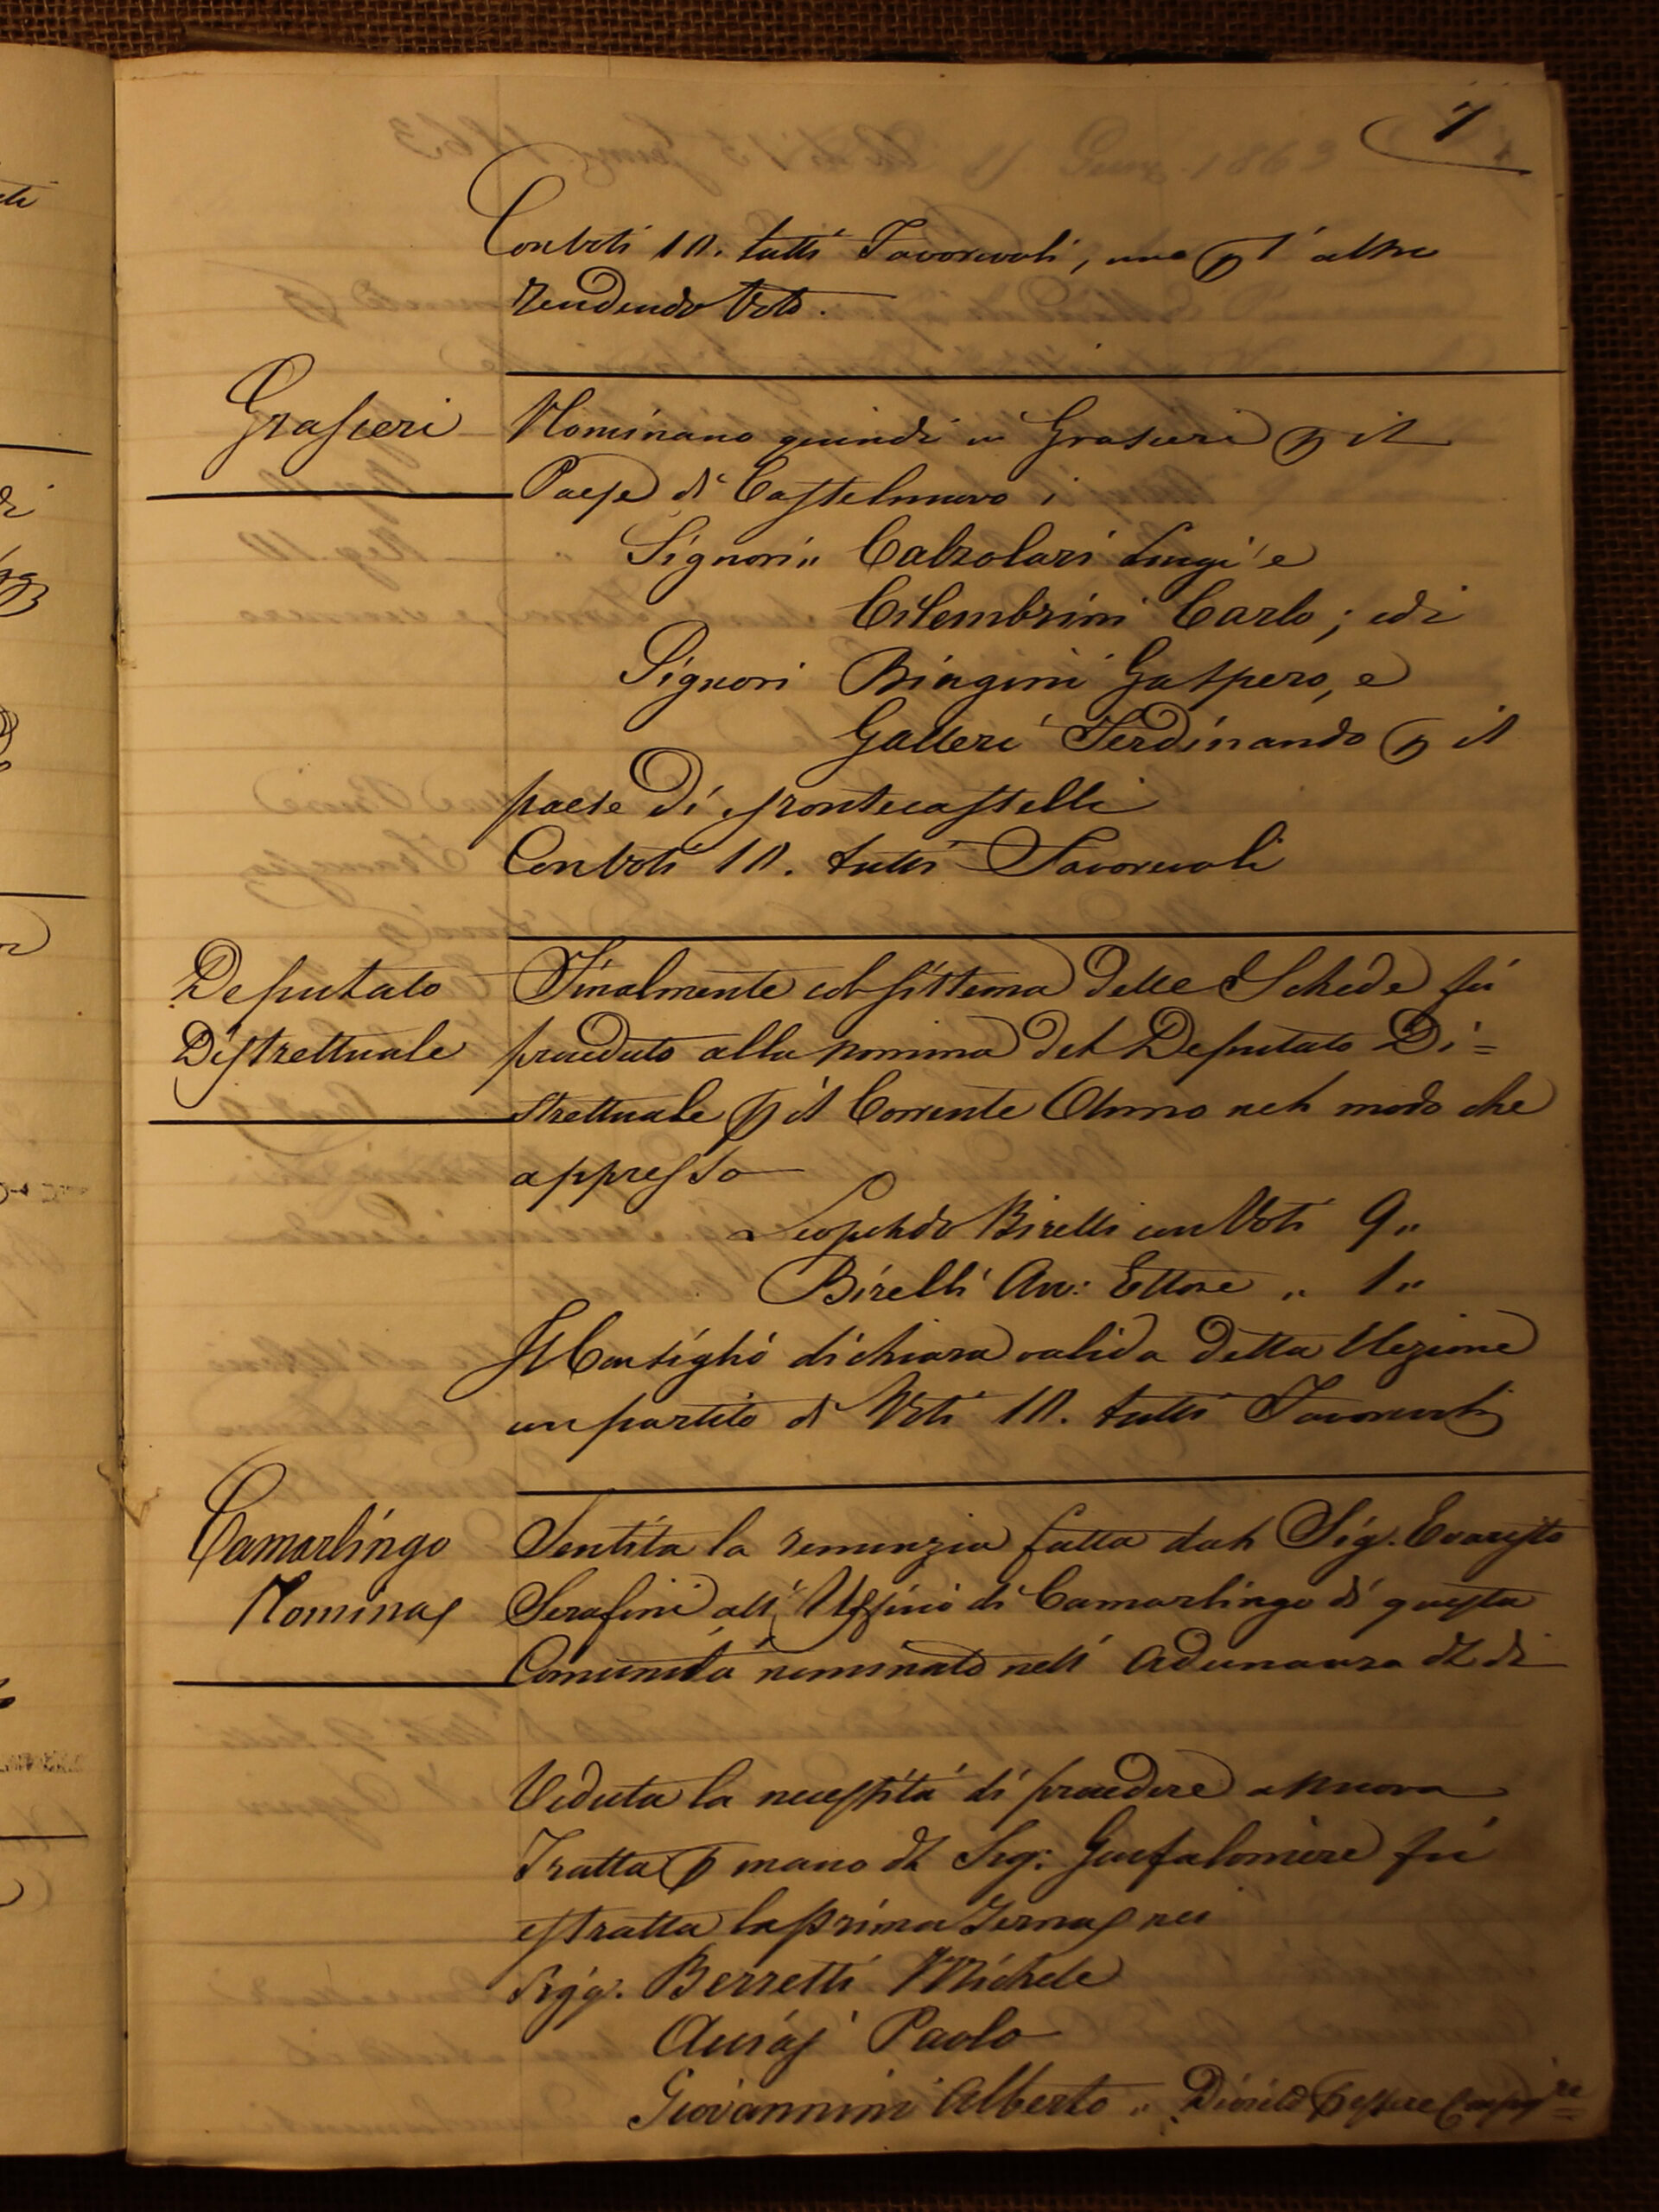 7
Con Voti 10. tutti Favorevoli, uno p l'altro
rendendo Voto.
Grascieri
Nominano quindi in Grascieri p il
Paese di Castelnuovo i
Signori „ Calzolari Luigi e
Citembrini Carlo; ed i
Signori Biagini Gaspero, e
Galleri Ferdinando p il
paese di Montecastelli
Con Voti 10. tutti Favorevoli
Deputato
Distrettuale
Finalmente col sistema delle Schede fù
proceduto alla nomina del Deputato Di=
strettuale p il Corrente Anno nel modo che
appresso
Leopoldo Birelli con Voti 9„
Birelli Avv: Ettore „ 1„
Il Consiglio dichiara valida detta Elezione
con partito di Voti 10. tutti Favorevoli
Camarlingo
Nomina
Sentita la renunzia fatta dal Sig. Evaristo
Serafini all'Uffizio di Camarlingo di questa
Comunità nominato nell'Adunanza del dì
Veduta la necessità di procedere a nuova
Tratta p mano del Sig: Gonfaloniere fù
estratta la prima Terna nei
Sigg. Berretti Michele
Auraj Paolo
Giovannini Alberto „ Divieto p essere